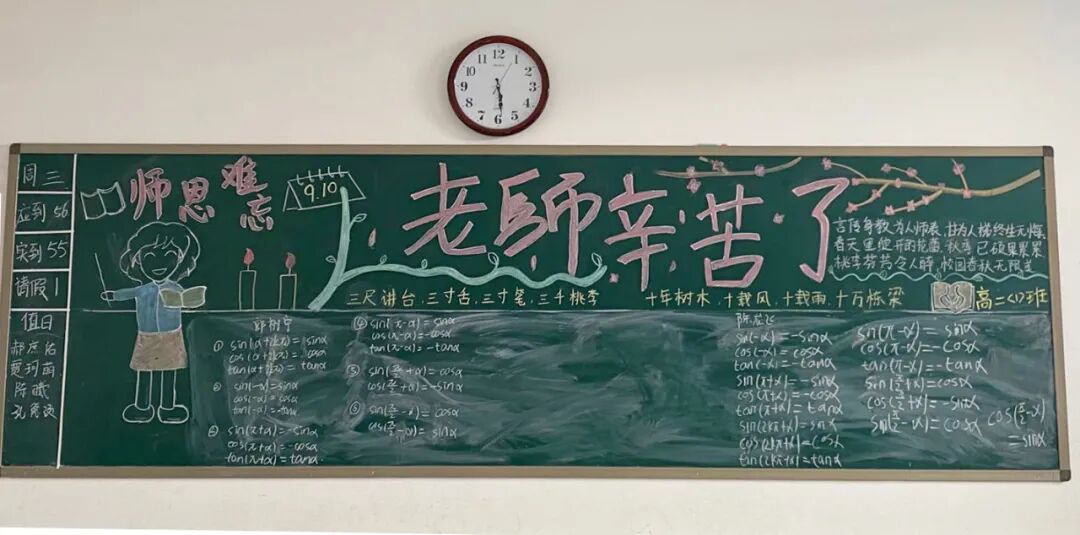 12
1
2
3
4
5
6
7
8
9
10
11
周三
应到 56
实到 55
请假 1
值日
师恩难忘
9.10
老師辛苦了
言传身教为人师表 甘为人梯终生无悔
春天里绽开的花蕾 秋季已硕果累累
桃李芬芳令人醉 校园春秋无限美
三尺讲台,三寸舌,三寸笔,三千桃李
十年树木,十载风,十载雨,十万栋梁
高二(1)班
① sin(α+2kπ)=sinα
cos(α+2kπ)=cosα
tan(α+2kπ)=tanα
sin(-α)=-sinα
cos(-α)=cosα
tan(-α)=-tanα
sin(π+α)=-sinα
cos(π+α)=-cosα
tan(π+α)=tanα.
④ sin(π-α)=sinα
cos(π-α)=-cosα
tan(π-α)=-tanα
⑤ sin(π/2+α)=cosα
cos(π/2+α)=-sinα
sin(π/2-α)=cosα
cos(π/2-α)=sinα
sin(-α)=-sinα
cos(-α)=cosα
tan(-α)=-tanα
sin(π+α)=-sinα
cos(π+α)=-cosα
tan(π+α)=tanα
sin(2kπ+α)=sinα
cos(2kπ+α)=cosα
tan(2kπ+α)=tanα
sin(π-α)=sinα
cos(π-α)=-cosα
tan(π-α)=-tanα
sin(π/2+α)=cosα
cos(π/2+α)=-sinα
sin(π/2-α)=cosα
cos(π/2-α)
=sinα